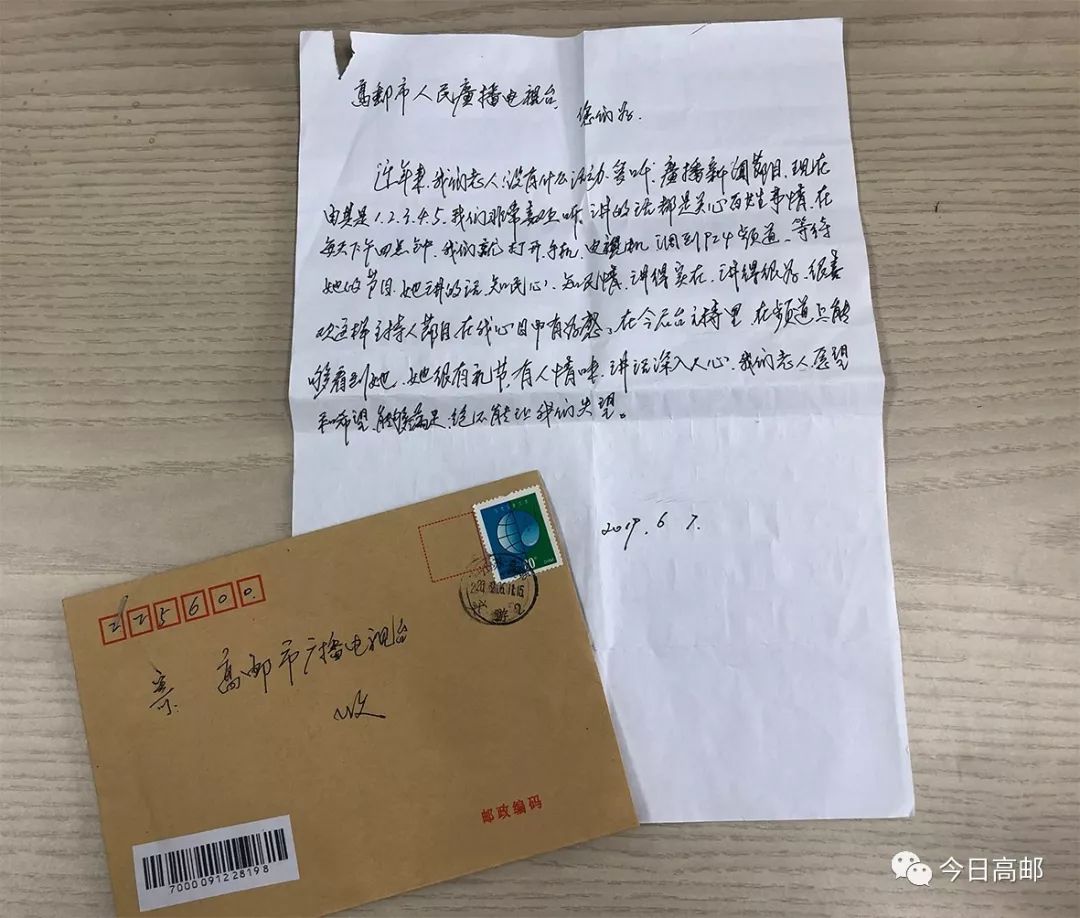 高邮市人民廣播电视台
您们好.
近年来.我们老人.没有什么活动.多听.廣播新闻節目.现在
由其是1.2.3.4.5.我们非常喜欢听.讲的话都是关心百姓事情.在
每天下午四点钟.我们就打开手机.电視机.调到P24频道.等待
她的节目.她讲的话.知民心.知民情.讲得实在.讲得很好.很喜
欢这样主持人節目.在我心目中有好感.在今后台主持里.在频道上能
够看到她.她很有礼节.有人情味.讲话深入人心.我们老人愿望
和希望.能够满足.绝不能让我们失望。
2019.6.7.
225600.
寄
高邮市广播电视台
收
邮政编码
7000091228198
今日高邮